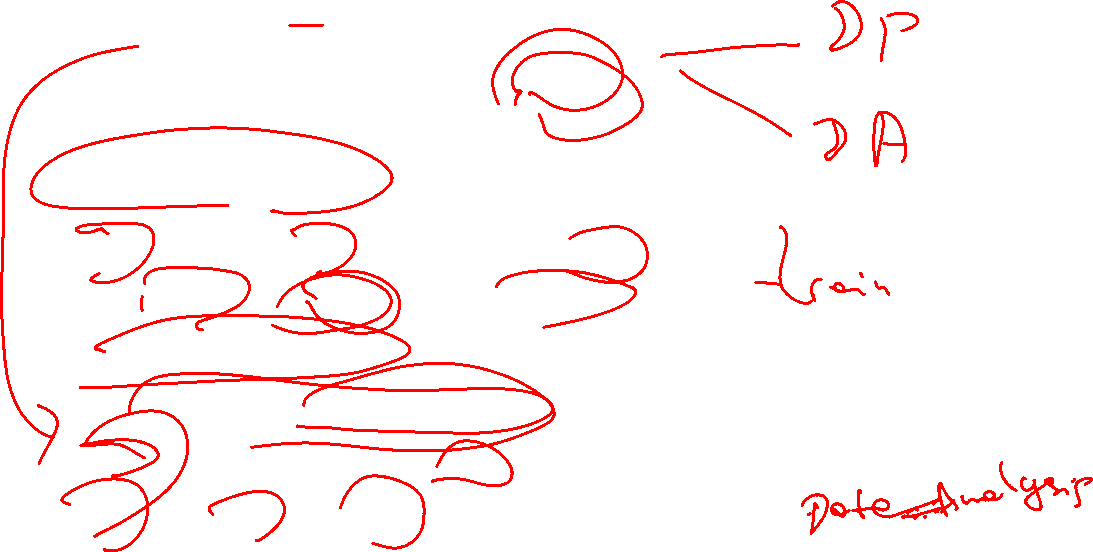 DP
DA
train
Data Analysis